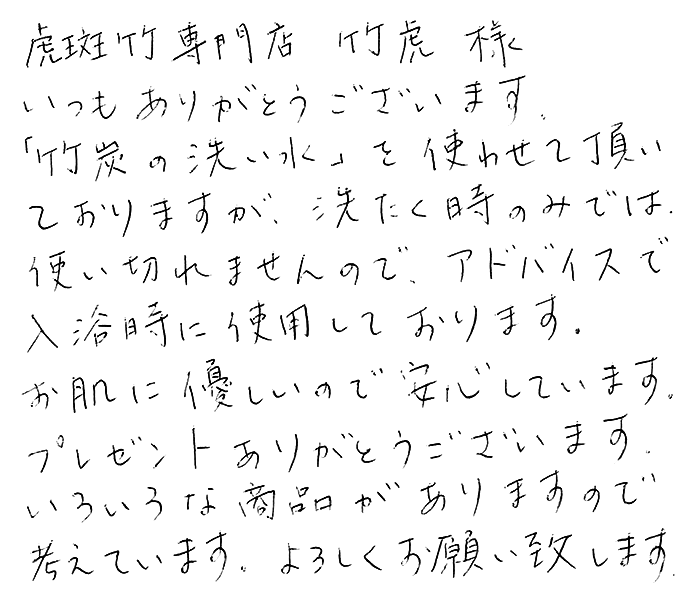 虎斑竹専門店 竹虎 様
いつもありがとうございます。
「竹炭の洗い水」を使わせて頂い
ておりますが、洗たく時のみでは
使い切れませんので、アドバイスで
入浴時に使用しております。
お肌に優しいので安心しています。
プレゼントありがとうございます。
いろいろな商品がありますので
考えています。よろしくお願い致します。